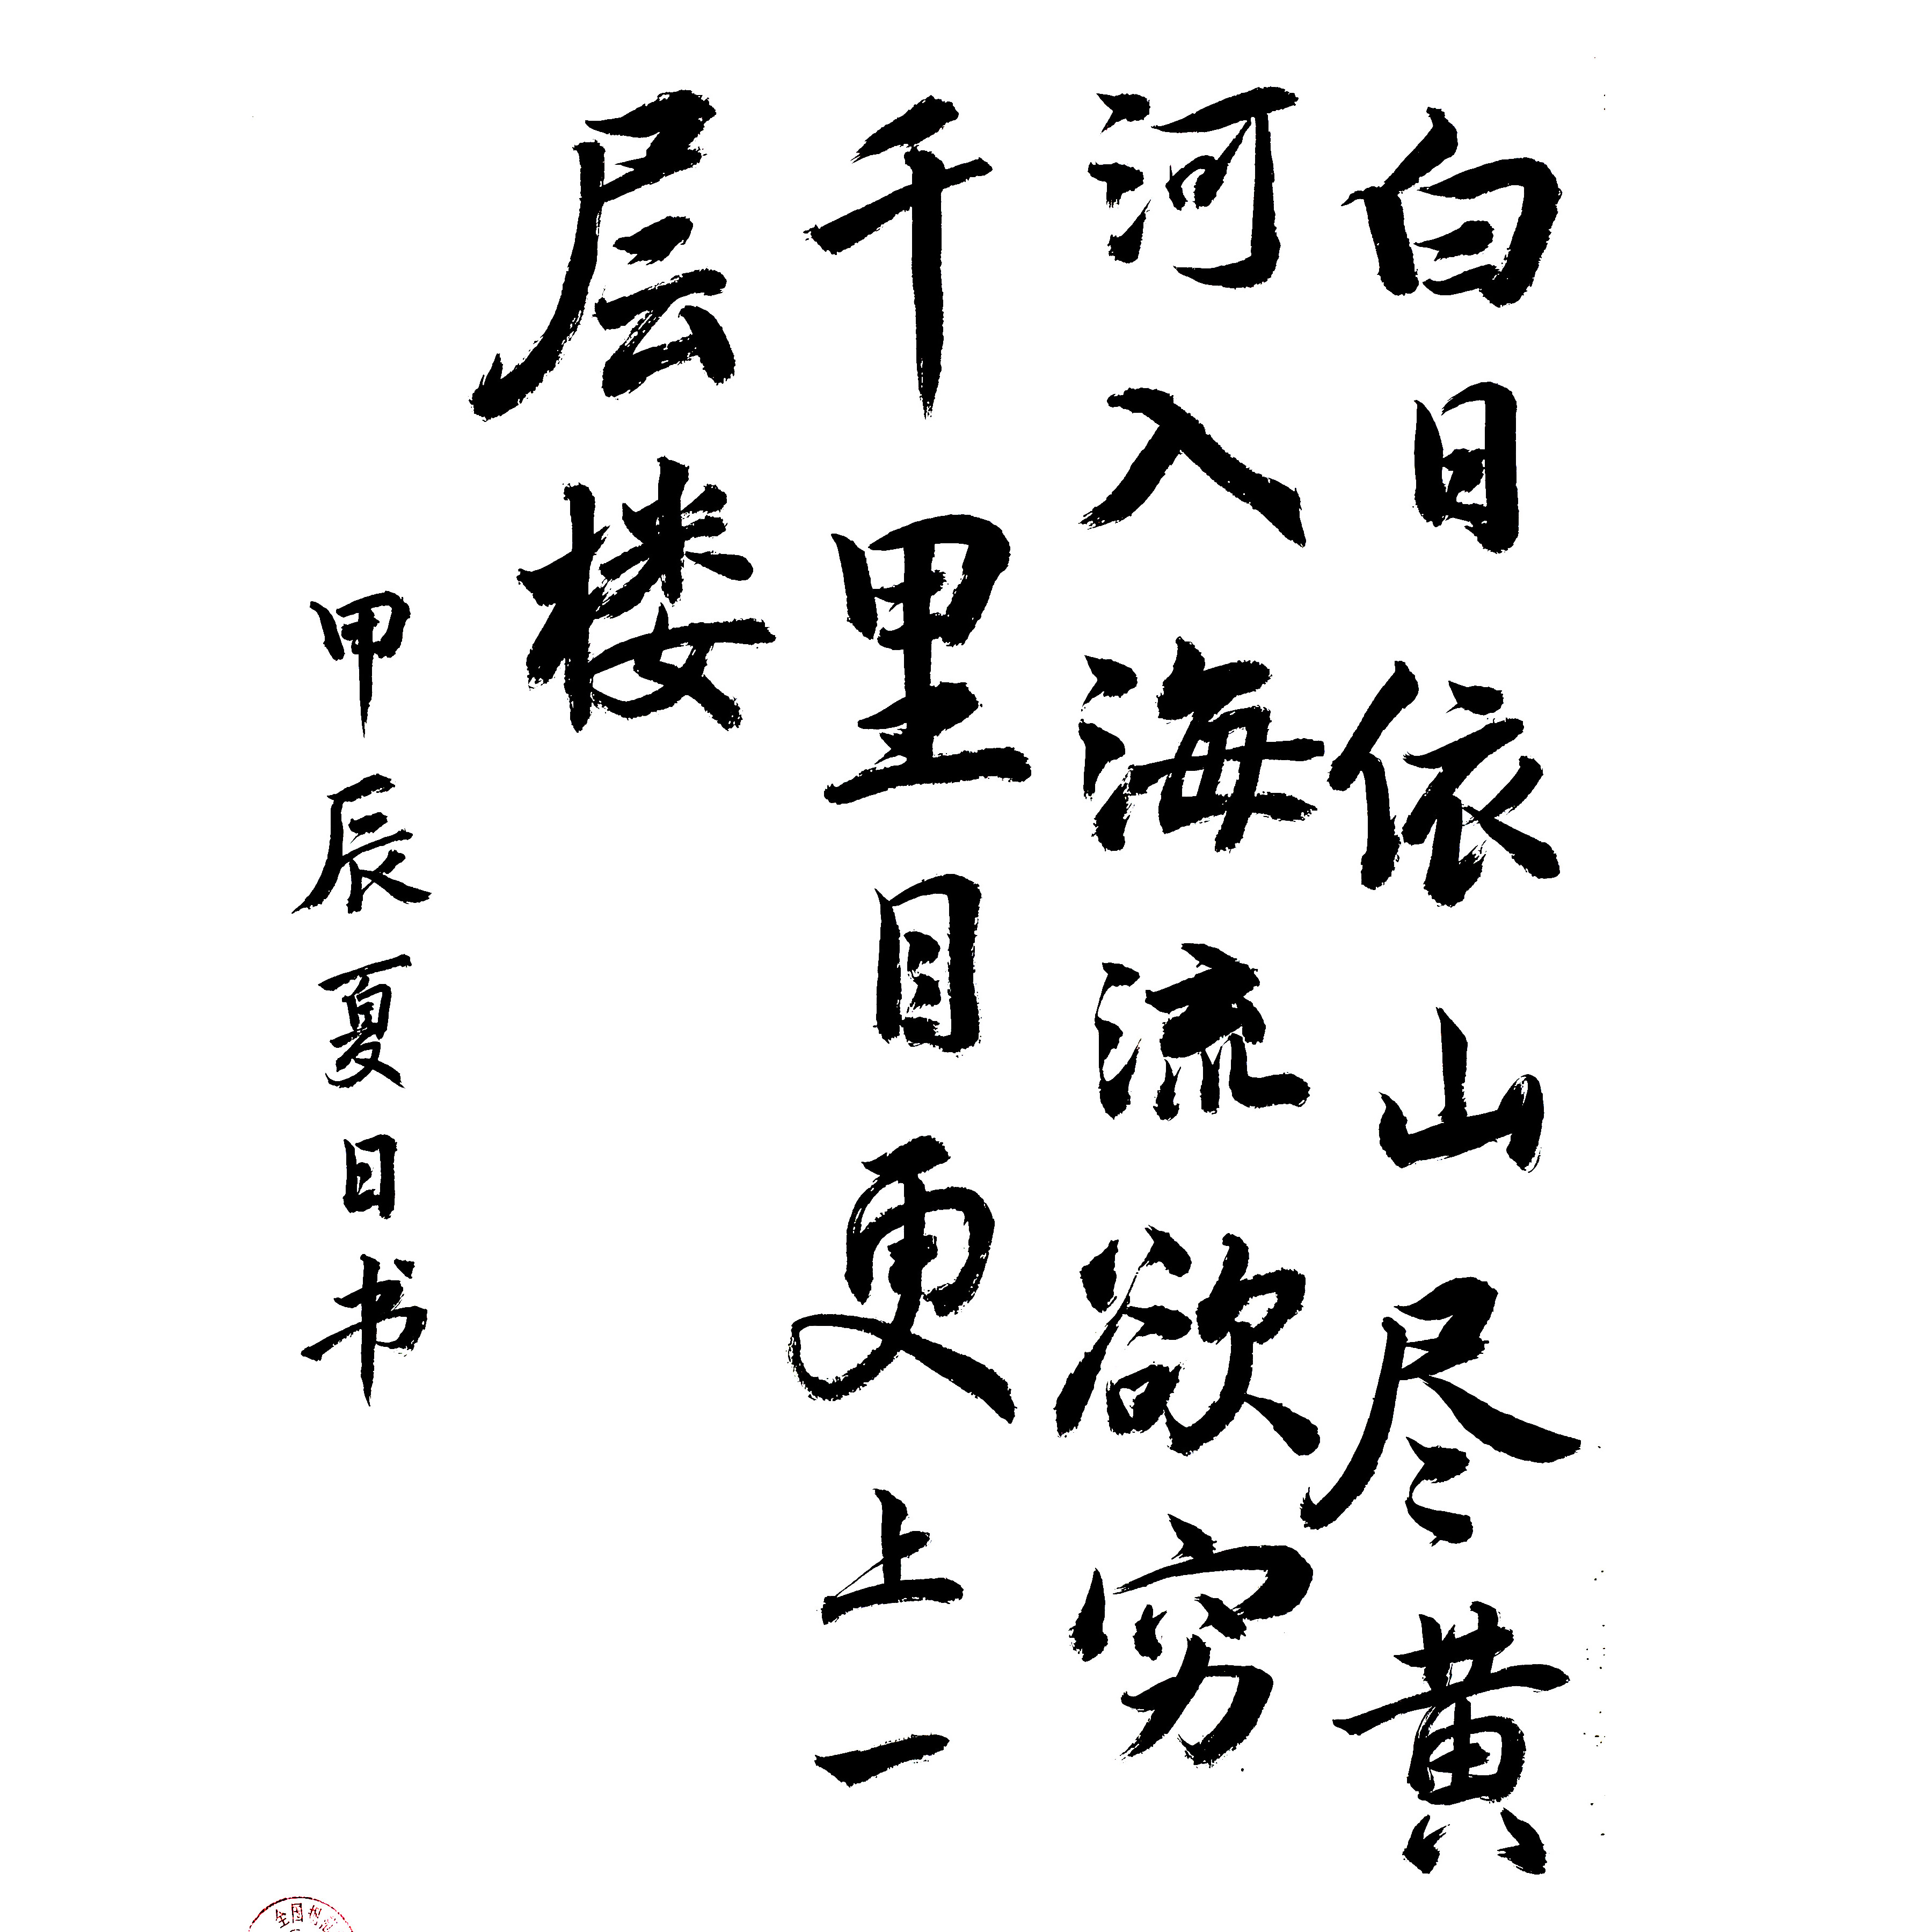 白日依山尽黄
河入海流欲穷
千里目更上一
层楼
甲辰夏日书
全国